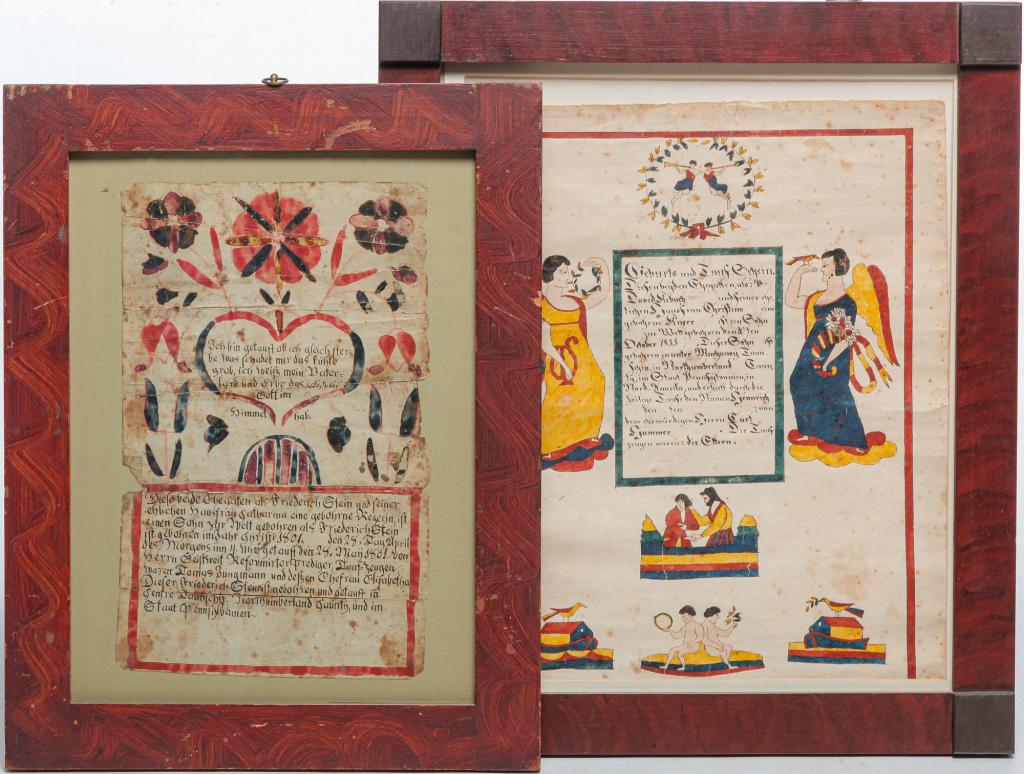 Ich bin getauft ob ich gleich ster-
be was schadet mir das kühle
grab, ich weiß mein Vater-
land und Erbe das ich bey
Gott im
Himmel hab.
Diese beide Ehegaten als Friederich Stein und seiner
ehlichen Hausfrau Catharina eine gebohrne Regerin, ist
einen Sohn zur Welt gebohren als Friederich Stein
ist gebohren im Jahr Christi 1801. den 28. Tag April
des Morgens um 4 Uhr getauf den 28. May 1801. von
Herrn Geistreit Reformirter Prediger, Tauf zeugen
waren Tomas Jungmann und deßen Ehefrau Elisabetha
Dieser Friederich Stein ist gebohren und getauft in
Centre Taunschip, Northumberland Caunty, und im
Staat Pennsylvanien.
Geburts und Tauf Schein.
Diesen beiden Ehegatten, als:
David und seiner ehe
lichen Hausfrau Christina eine
gebohrne ist ein Sohn
zur Welt gebohren den
October 1835 Dieser Sohn ist
gebohren in unter Machanoy Taun
schip, in Northumberland Caun
ty, im Staat Pennsylvanien, in
Nord America, und erhielt durch die
heilige Taufe den Namen Heinrich
den ten von
dem Ehrwürdigen Herrn Carl
Hammer. Die Tauf
zeugen waren: die Eltern.